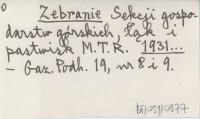 Zebranie Sekcji gospo-
darstw górskich, łąk i
pastwisk M.T.R. 1931...
– Gaz. Podh. 19, nr 8 i 9.